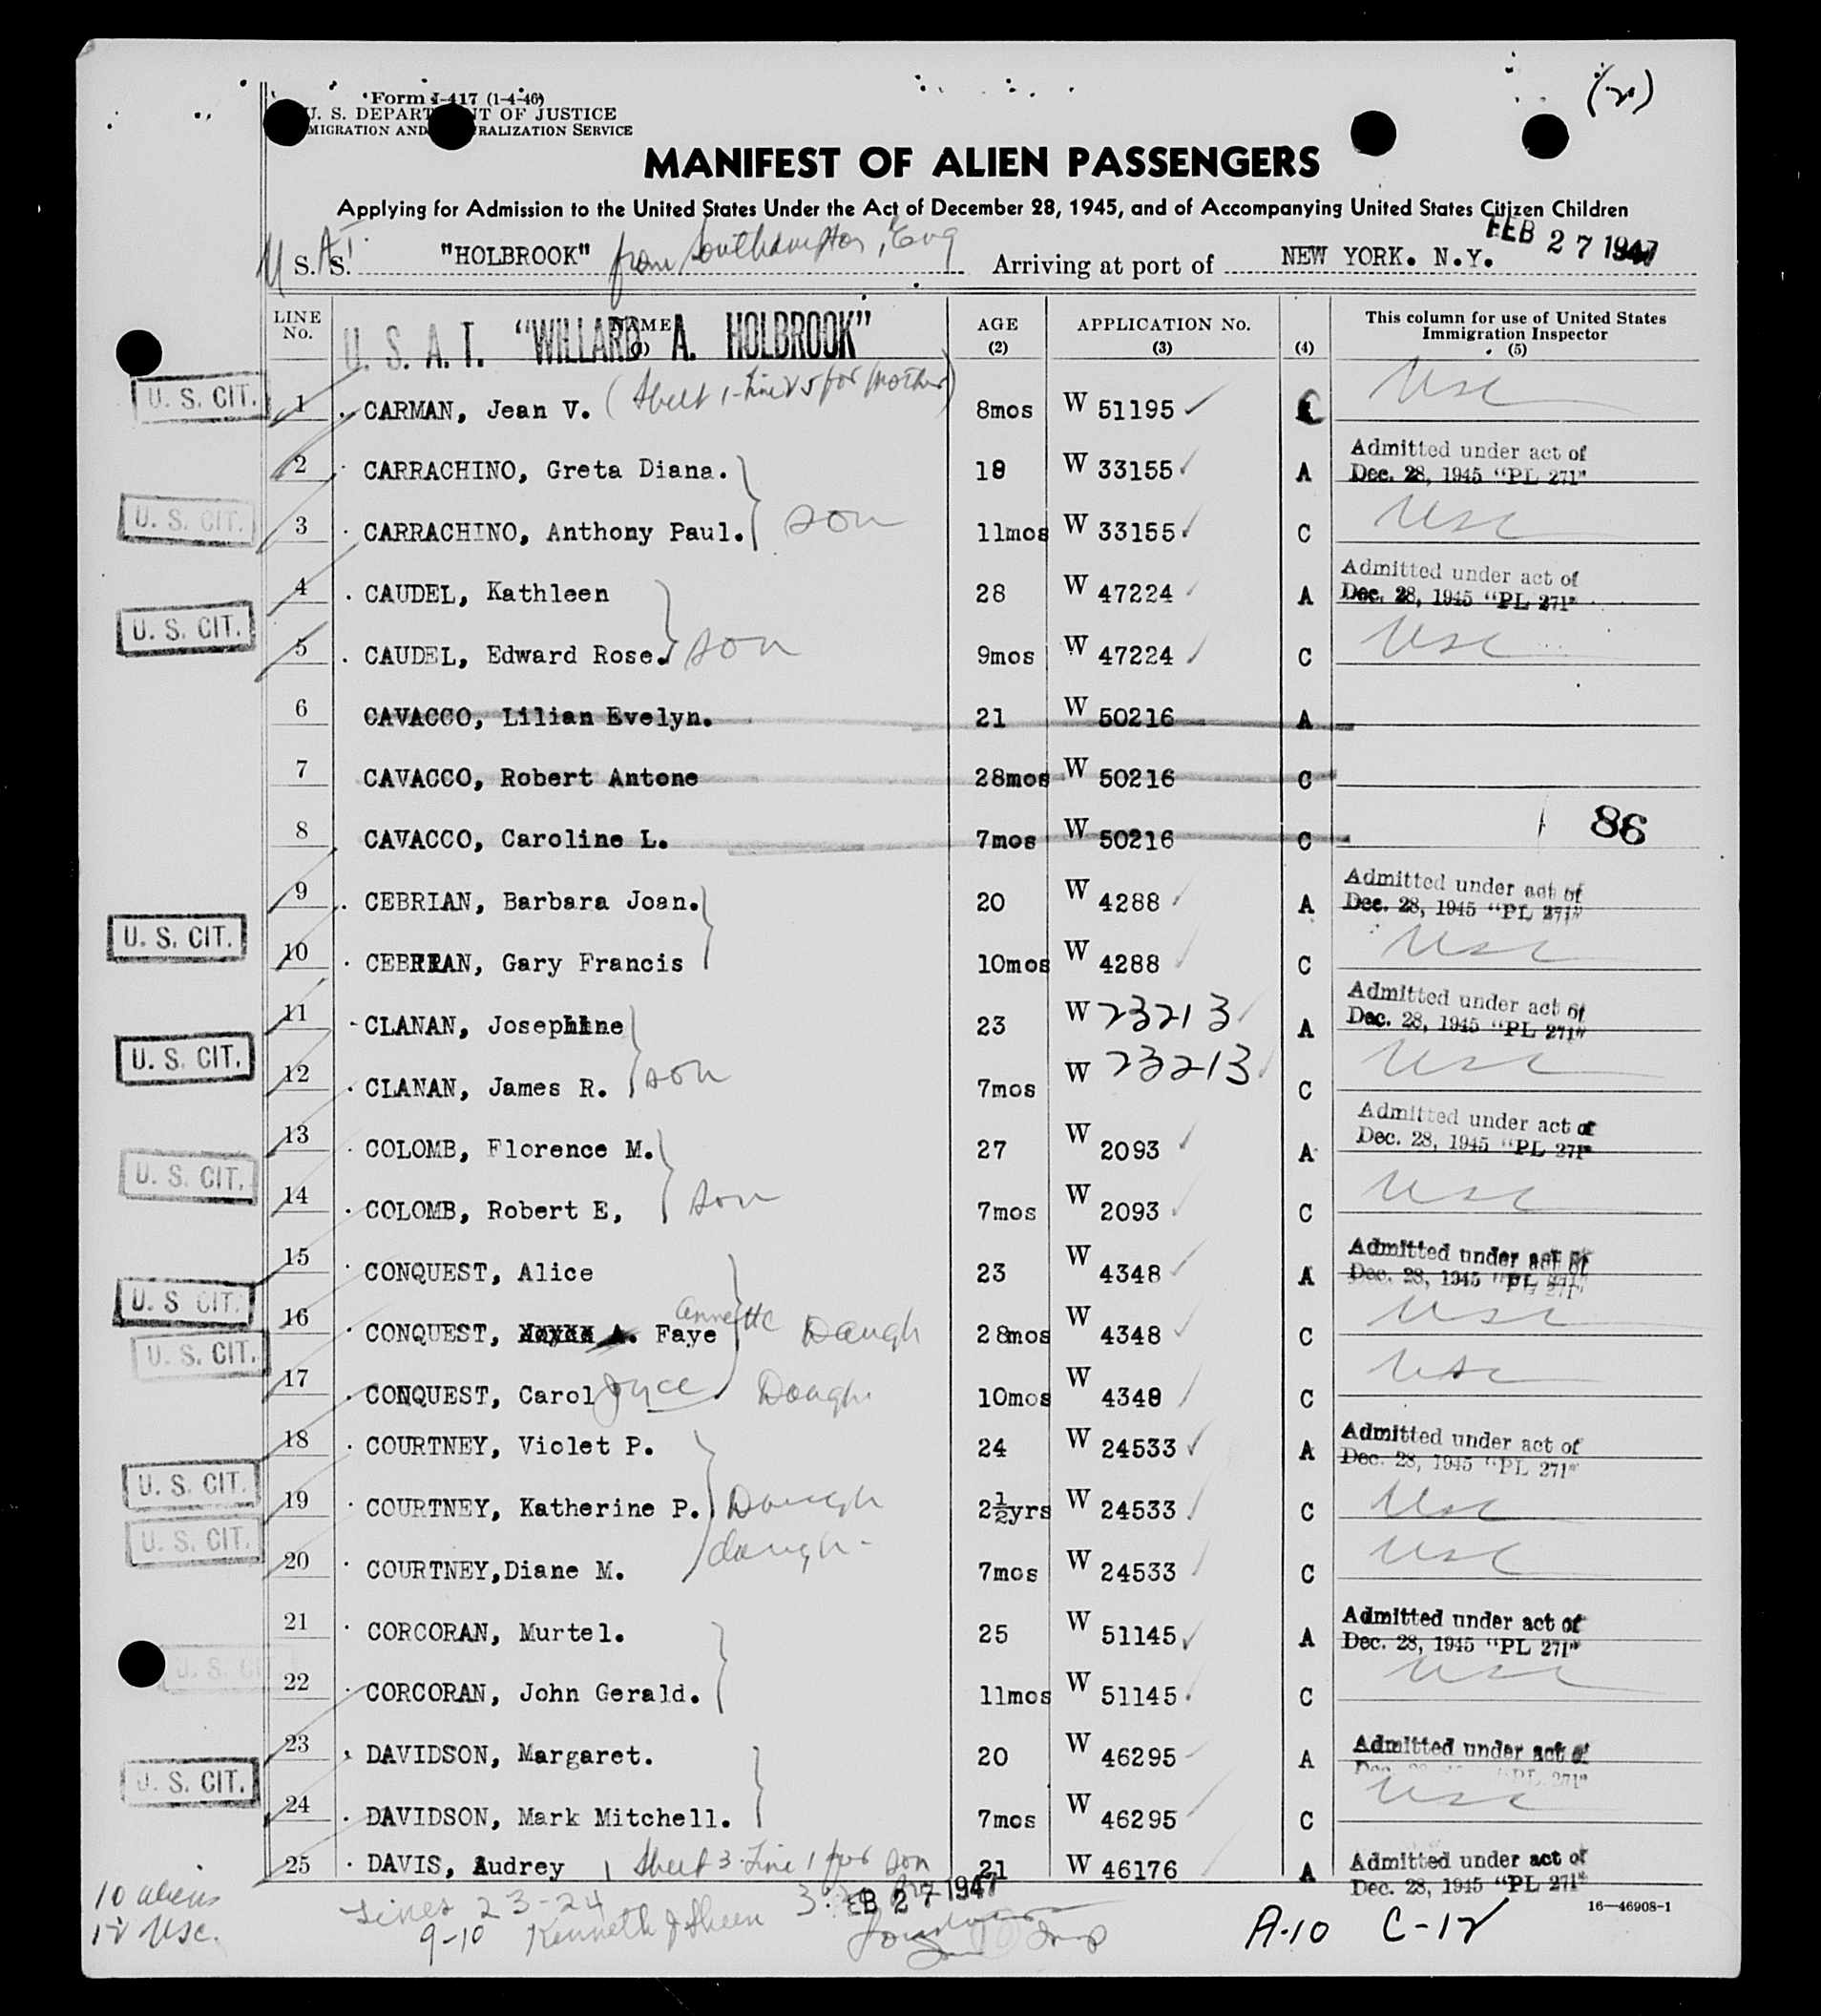 (2)
Form I-417 (1-4-46)
U. S. DEPARTMENT OF JUSTICE
MIGRATION AND RALIZATION SERVICE
MANIFEST OF ALIEN PASSENGERS
Applying for Admission to the United States Under the Act of December 28, 1945, and of Accompanying United States Citizen Children
U.S.A.T. S. S. "HOLBROOK" from Southampton, Eng Arriving at port of NEW YORK. N.Y. FEB 27 1947
LINE No. NAME (1) AGE (2) APPLICATION No. (3) (4) This column for use of United States Immigration Inspector (5)
U. S. A. T. "WILLARD A. HOLBROOK"
U. S. CIT. 1 CARMAN, Jean V. (Sheet 1-Line 25 for mother) 8mos W 51195 C USC
2 CARRACHINO, Greta Diana. 18 W 33155 A Admitted under act of Dec. 28, 1945 "PL 271"
U. S. CIT. 3 CARRACHINO, Anthony Paul. son 11mos W 33155 C USC
4 CAUDEL, Kathleen 28 W 47224 A Admitted under act of Dec. 28, 1945 "PL 271"
U. S. CIT. 5 CAUDEL, Edward Rose. son 9mos W 47224 C USC
6 CAVACCO, Lilian Evelyn. 21 W 50216 A
7 CAVACCO, Robert Antone 28mos W 50216 C
8 CAVACCO, Caroline L. 7mos W 50216 C 86
9 CEBRIAN, Barbara Joan. 20 W 4288 A Admitted under act of Dec. 28, 1945 "PL 271"
U. S. CIT. 10 CEBRIAN, Gary Francis 10mos W 4288 C USC
11 CLANAN, Josephine 23 W 23213 A Admitted under act of Dec. 28, 1945 "PL 271"
U. S. CIT. 12 CLANAN, James R. son 7mos W 23213 C USC
13 COLOMB, Florence M. 27 W 2093 A Admitted under act of Dec. 28, 1945 "PL 271"
U. S. CIT. 14 COLOMB, Robert E, son 7mos W 2093 C USC
15 CONQUEST, Alice 23 W 4348 A Admitted under act of Dec. 28, 1945 "PL 271"
U. S CIT. 16 CONQUEST, A. Faye Annette Daugh 28mos W 4348 C USC
U. S. CIT. 17 CONQUEST, Carol Joyce Daugh 10mos W 4348 C USC
18 COURTNEY, Violet P. 24 W 24533 A Admitted under act of Dec. 28, 1945 "PL 271"
U. S. CIT. 19 COURTNEY, Katherine P. Daugh 2½yrs W 24533 C USC
U. S. CIT. 20 COURTNEY,Diane M. daugh- 7mos W 24533 C USC
21 CORCORAN, Murtel. 25 W 51145 A Admitted under act of Dec. 28, 1945 "PL 271"
U. S. CI 22 CORCORAN, John Gerald. 11mos W 51145 C USC
23 DAVIDSON, Margaret. 20 W 46295 A Admitted under act of Dec. 28, 1945 "PL 271"
U. S. CIT. 24 DAVIDSON, Mark Mitchell. 7mos W 46295 C USC
25 DAVIS, Audrey Sheet 3-Line 1 for son 21 W 46176 A Admitted under act of Dec. 28, 1945 "PL 271"
10 aliens
12 USC.
Lines 23-24
9-10 Kenneth J Sheen
FEB 27 1947
Insp
A-10 C-12
16—46908-1